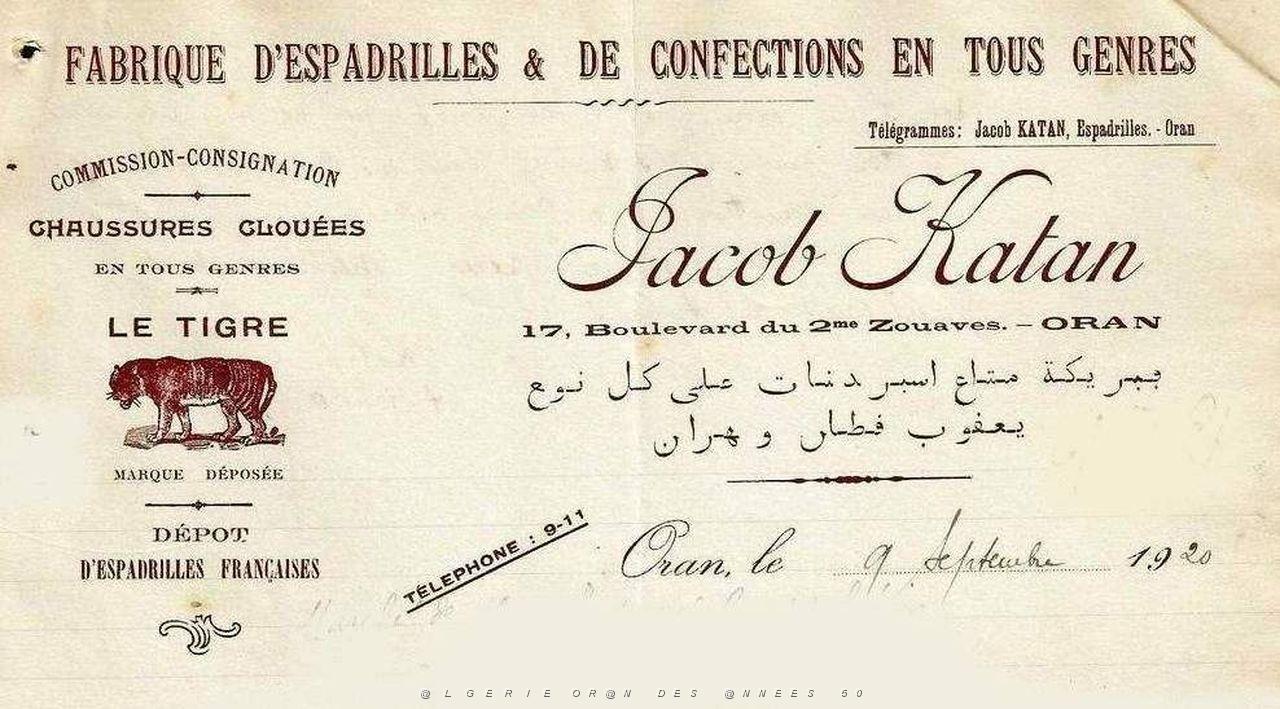 FABRIQUE D'ESPADRILLES & DE CONFECTIONS EN TOUS GENRES
Télégrammes: Jacob KATAN, Espadrilles. - Oran
COMMISSION-CONSIGNATION
CHAUSSURES CLOUÉES
EN TOUS GENRES
LE TIGRE
MARQUE DÉPOSÉE
DÉPOT
D'ESPADRILLES FRANÇAISES
Jacob Katan
17, Boulevard du 2me Zouaves. - ORAN
متاع اسبردنات على كل نوع
يعقوب قطان وهران
TÉLEPHONE : 9-11
Oran, le 9 Septembre 1920
@LGERIE OR@N DES @NNEES 50